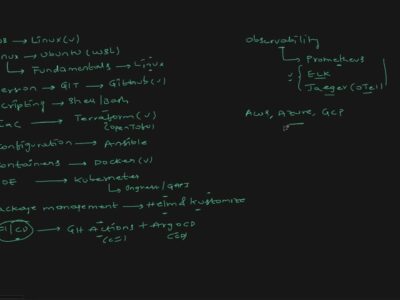 OS → Linux (v)
Linux → Ubuntu (WSL)
↳ Fundamentals → Linux
Version → GIT → GitHub (v)
Scripting → Shell/Bash
IaC → Terraform (v)
(OpenTofu)
Configuration → Ansible
Containers → Docker (v)
→ Kubernetes
↳ Ingress/GAPI
Package management → Helm & Kustomize
CI/CD → GH Actions + ArgoCD
(CI) (CD)
Observability
↳ Prometheus
v { ELK
Jaeger (OTel)
AWS, Azure, GCP